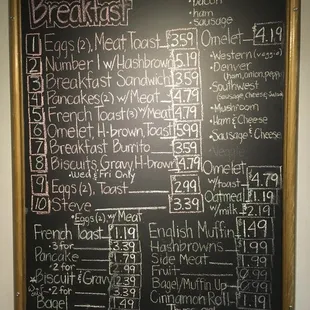 Breakfast
1 Eggs (2), Meat Toast $3.59
2 Number 1 w/Hashbrown 5.19
3 Breakfast Sandwich 3.59
4 Pancakes (2) w/Meat 4.79
5 French Toast (3) w/Meat 4.79
6 Omelet, H-brown, Toast 5.99
7 Breakfast Burrito 3.59
8 Biscuits Gravy H-brown 4.79
• Wed & Fri Only
9 Eggs (2), Toast 2.99
10 Steve 3.39
• Eggs (2) w/ Meat
French Toast $1.19
• 3 for 3.39
Pancake 1.79
• 2 for 2.99
Biscuit & Gravy 2.39
• 2 for 3.39
Bagel 1.49
• Bacon
• ham
• Sausage
Omelet $4.19
• Western (veggie)
• Denver
(ham, onion, pepp)
• Southwest
(Sausage, Cheese, Salsa)
• Mushroom
• Ham & Cheese
• Sausage & Cheese
Omelet
w/toast $4.79
Oatmeal $1.19
w/milk $2.19
English Muffin $1.49
Hashbrowns 1.99
Side Meat 1.99
Fruit
Bagel/Muffin Up
Cinnamon Roll $1.19